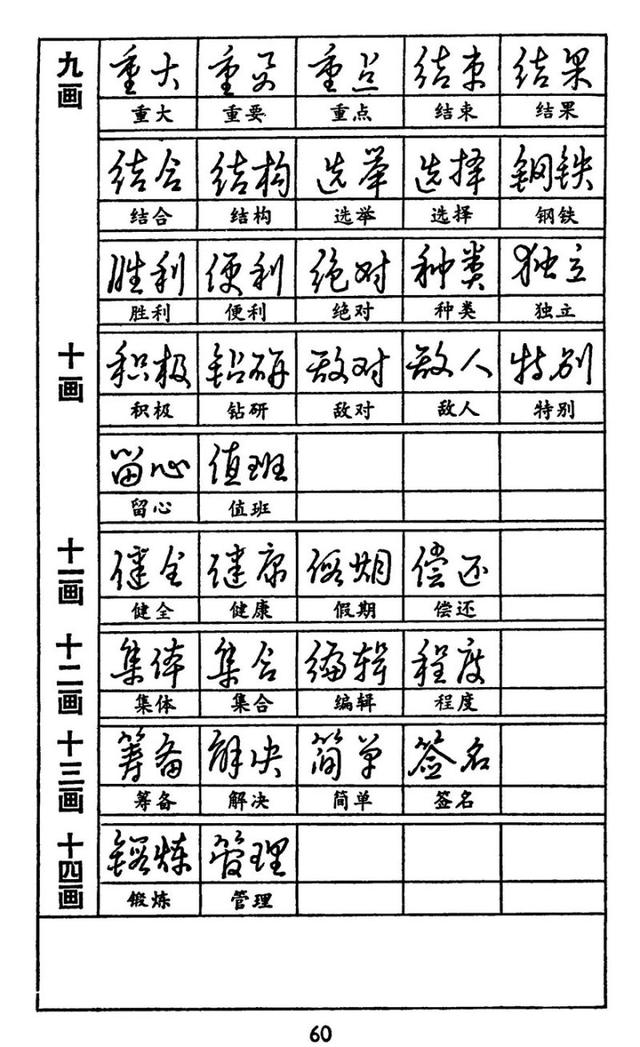 九画
重大 重要 重点 结束 结果
重大 重要 重点 结束 结果
结合 结构 选举 选择 钢铁
结合 结构 选举 选择 钢铁
胜利 便利 绝对 种类 独立
胜利 便利 绝对 种类 独立
十画
积极 钻研 敌对 敌人 特别
积极 钻研 敌对 敌人 特别
留心 值班
留心 值班
十一画
健全 健康 假期 偿还
健全 健康 假期 偿还
十二画
集体 集合 编辑 程度
集体 集合 编辑 程度
十三画
筹备 解决 简单 签名
筹备 解决 简单 签名
十四画
锻炼 管理
锻炼 管理
60